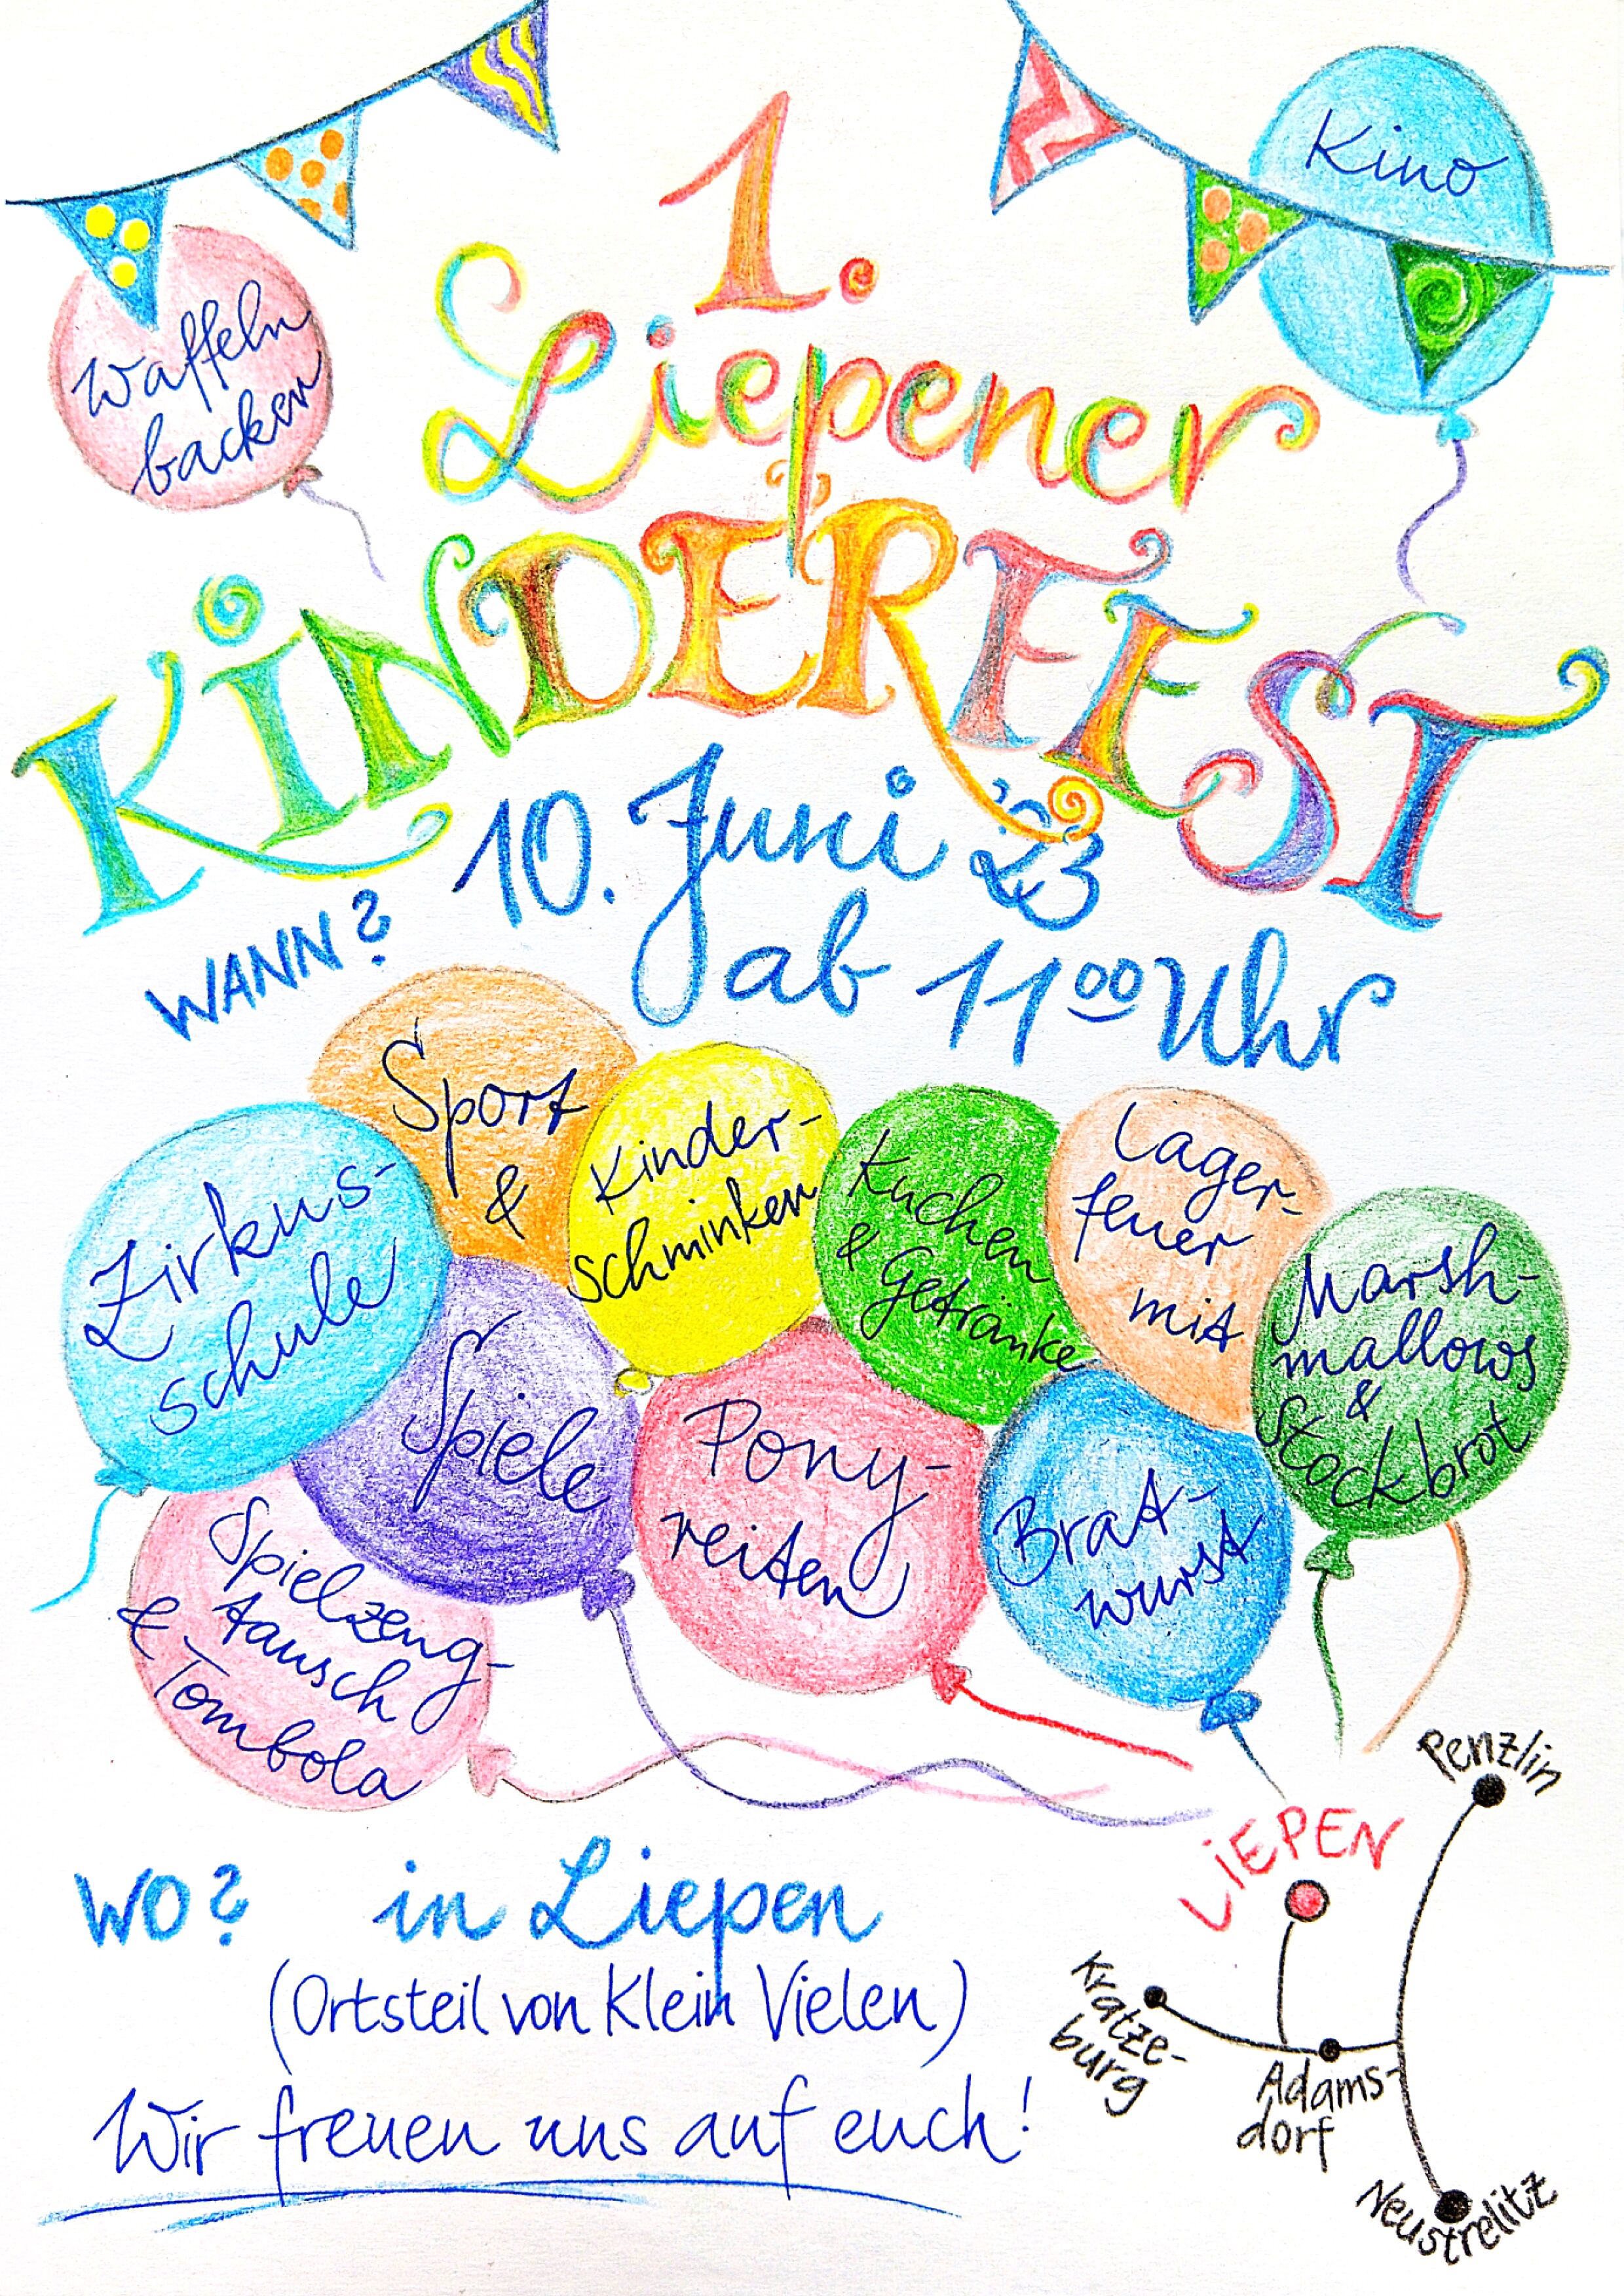 1.
Kino
Waffeln
backen
Liepener
KINDERFEST
WANN? 10. Juni '23
ab 11 00 Uhr
Sport
&
Spiele
Kinder-
schminken
Kuchen
& Getränke
Lager-
feuer
mit
Marsh-
mallows
&
Stockbrot
Zirkus-
schule
Pony-
reiten
Brat-
wurst
Spielzeug-
tausch
& Tombola
WO? in Liepen
(Ortsteil von Klein Vielen)
Wir freuen uns auf euch!
Penzlin
LIEPEN
Kratze-
burg
Adams-
dorf
Neustrelitz